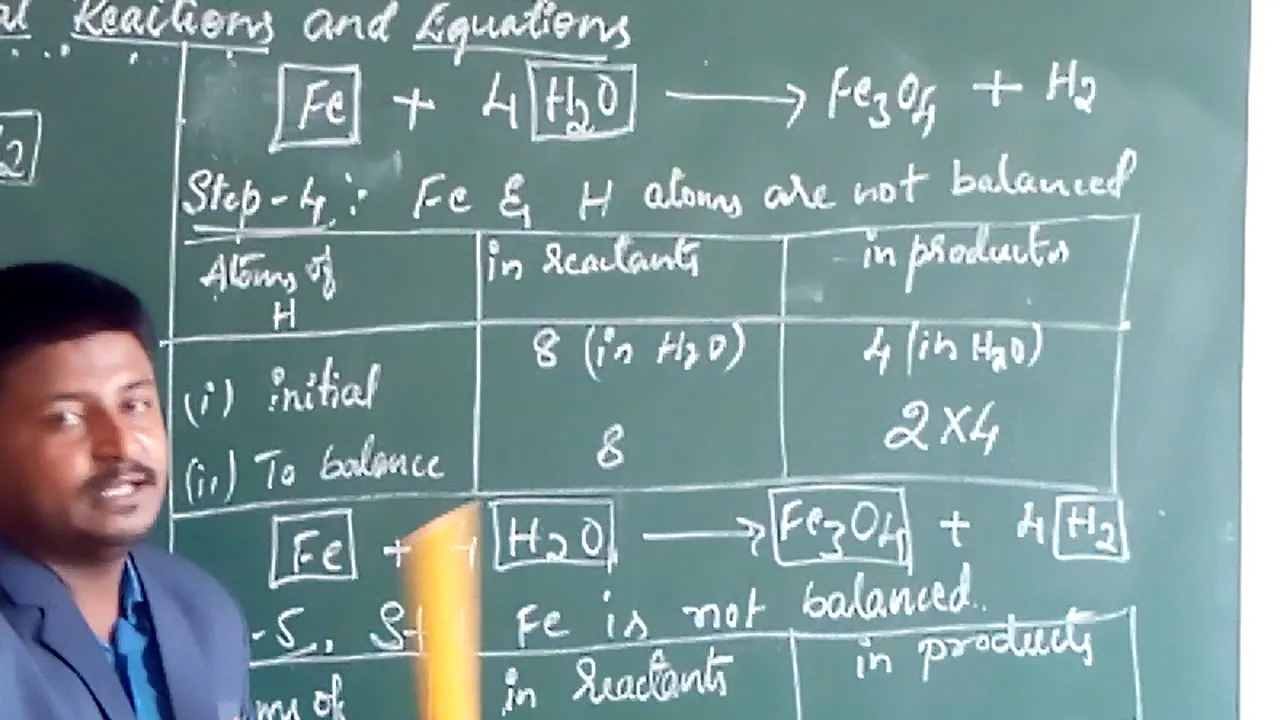 al Reactions and Equations
Fe + 4 H2O → Fe3O4 + H2
2
Step-4: Fe & H atoms are not balanced
Atoms of H in reactants in products
(i) initial 8 (in H2O) 4 (in H2O)
(ii) To balance 8 2×4
Fe + H2O → Fe3O4 + 4 H2
-5, St Fe is not balanced..
ms of in reactants in products